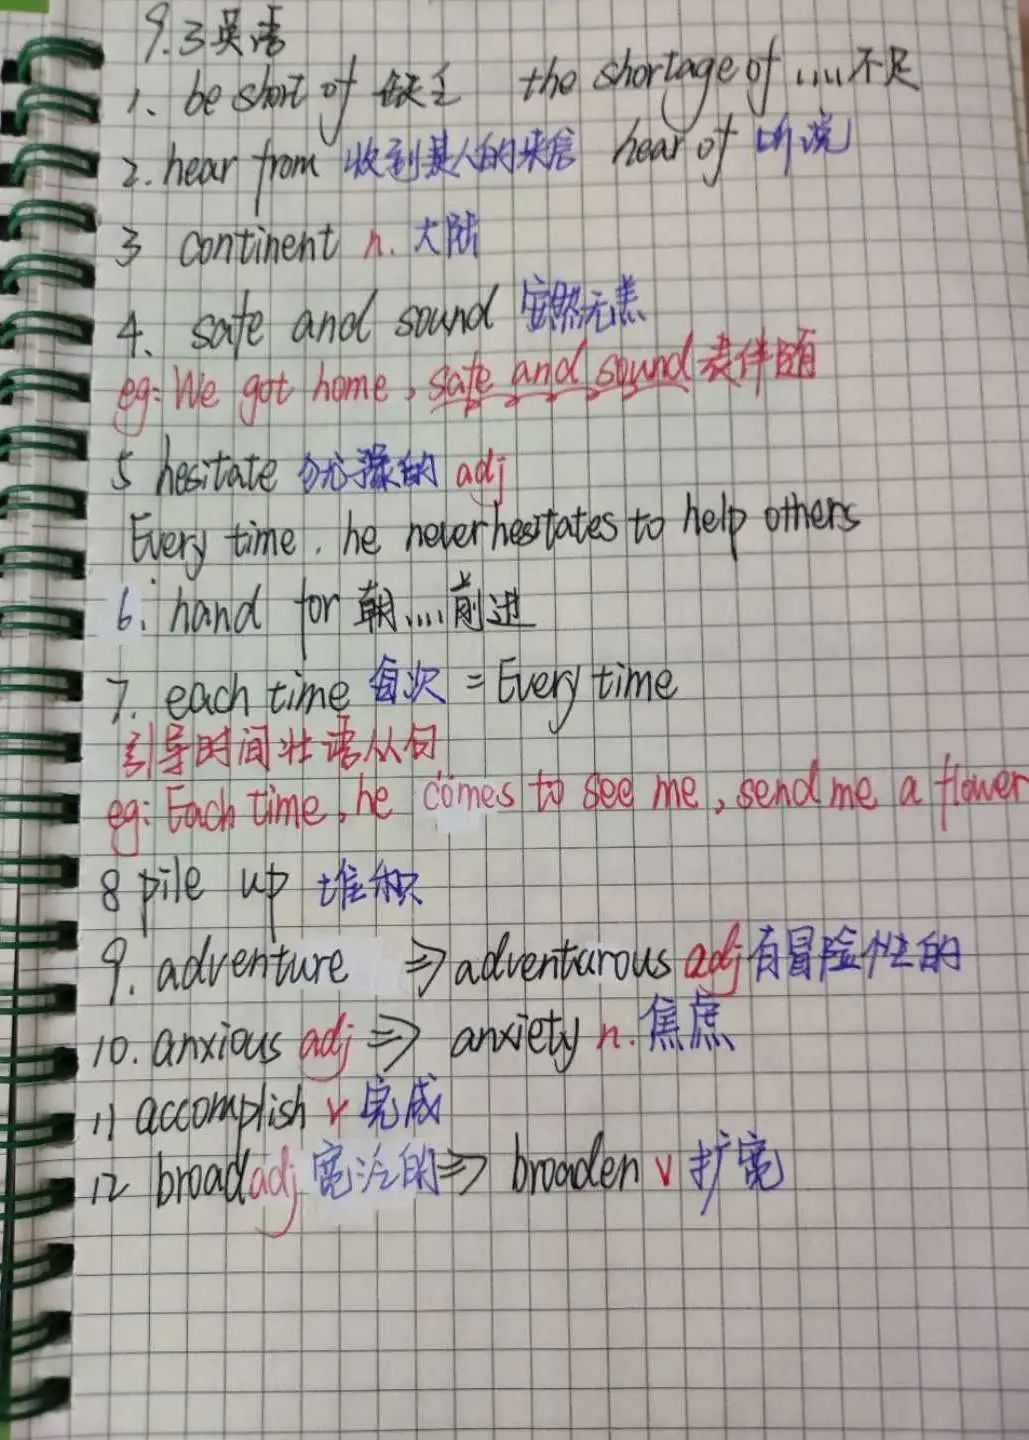 9.3英语
1、be short of 缺乏 the shortage of ......不足
2. hear from 收到某人的来信 hear of 听说
3 continent n. 大陆
4、safe and sound 安然无恙
eg: We got home, safe and sound 表伴随
5 hesitate 犹豫的 adj
Every time, he never hesitates to help others
6. hand for 朝......前进
7. each time 每次 = Every time
引导时间状语从句
eg: Each time, he comes to see me, send me a flower
8 pile up 堆积
9. adventure ⇒ adventurous adj 有冒险性的
10. anxious adj ⇒ anxiety n. 焦虑
11 accomplish v 完成
12 broad adj 宽泛的 ⇒ broaden v 扩宽